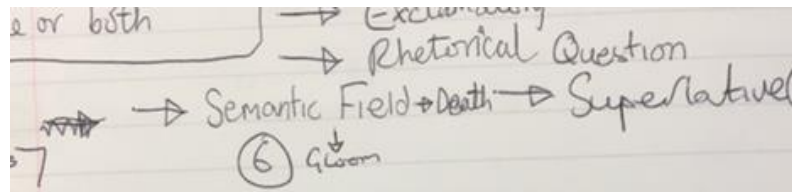 e or both → Exclamatory
→ Rhetorical Question
→ Semantic Field → Death → Superlative
7 ⑥ Gloom